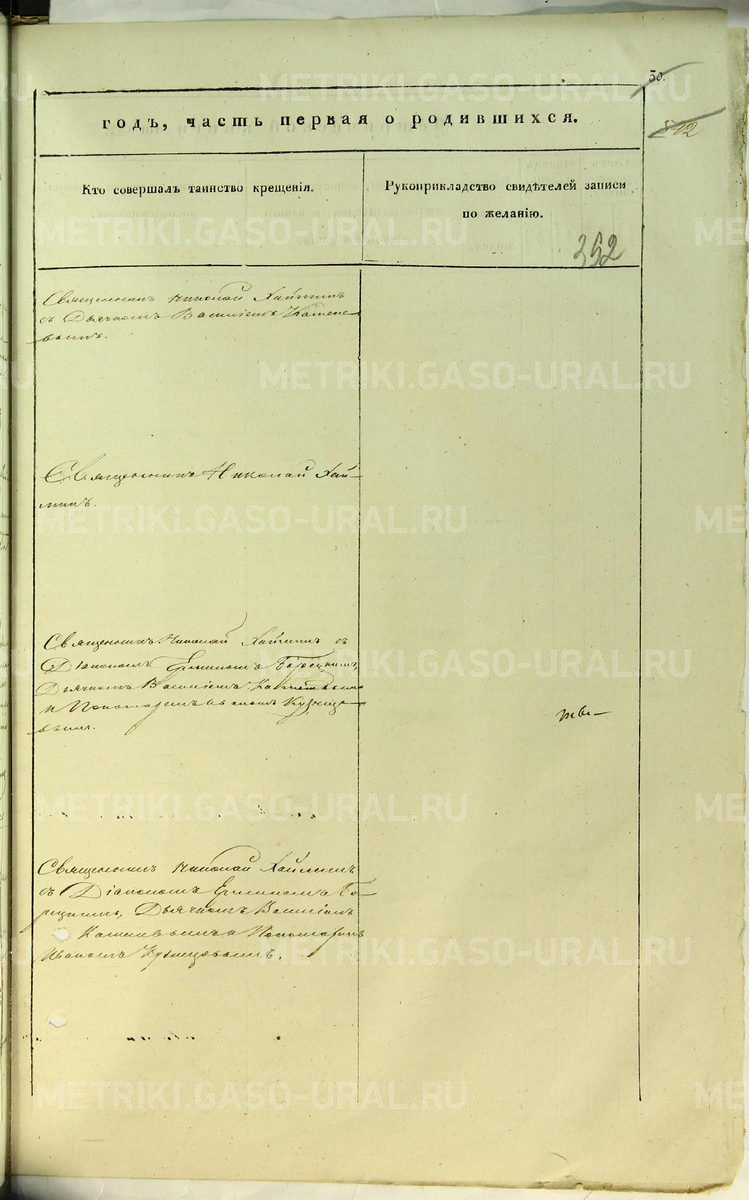 50.
годъ, часть первая о родившихся.
802
Кто совершалъ таинство крещенія.
Рукоприкладство свидѣтелей записи
по желанію.
352
Священникъ Николай Хайминъ
съ Дьячкомъ Василіемъ Камене-
вымъ.
Священникъ Николай Хай-
минъ.
Священникъ Николай Хайминъ съ
Діакономъ
Дьячкомъ Василіемъ
и Пономаремъ Иваномъ Кузнецо-
вымъ.
Священникъ Николай Хайминъ
съ Діакономъ
Дьячкомъ Василіемъ
Каменевымъ и Пономаремъ
Иваномъ Кузнецовымъ.
METRIKI.GASO-URAL.RU